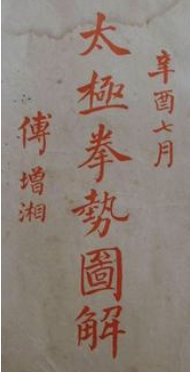 辛酉七月
太極拳勢圖解
傅增湘